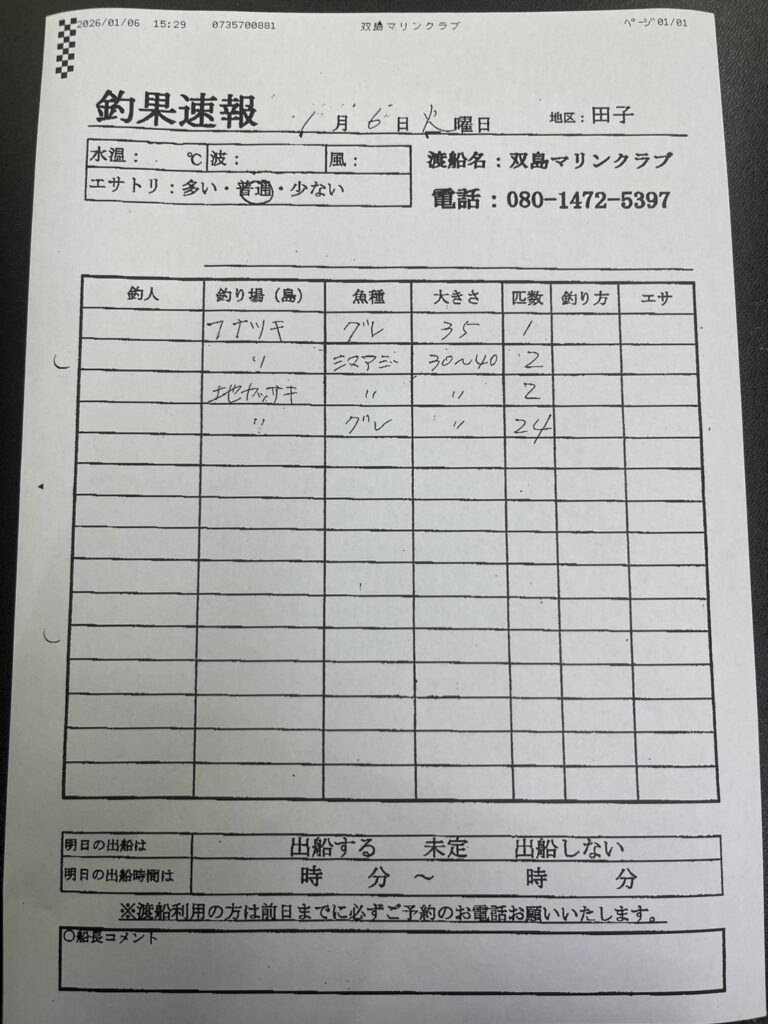 2026/01/06 15:29 0735700881 双島マリンクラブ ページ01/01
釣果速報 1月6日火曜日 地区:田子
水温: ℃ 波: 風:
エサトリ:多い・普通・少ない
渡船名:双島マリンクラブ
電話:080-1472-5397
釣人 釣り場(島) 魚種 大きさ 匹数 釣り方 エサ
フナツキ グレ 35 1
〃 シマアジ 30〜40 2
地カッサキ 〃 〃 2
〃 グレ 〃 24
明日の出船は 出船する 未定 出船しない
明日の出船時間は 時 分 〜 時 分
※渡船利用の方は前日までに必ずご予約のお電話お願いいたします。
○船長コメント